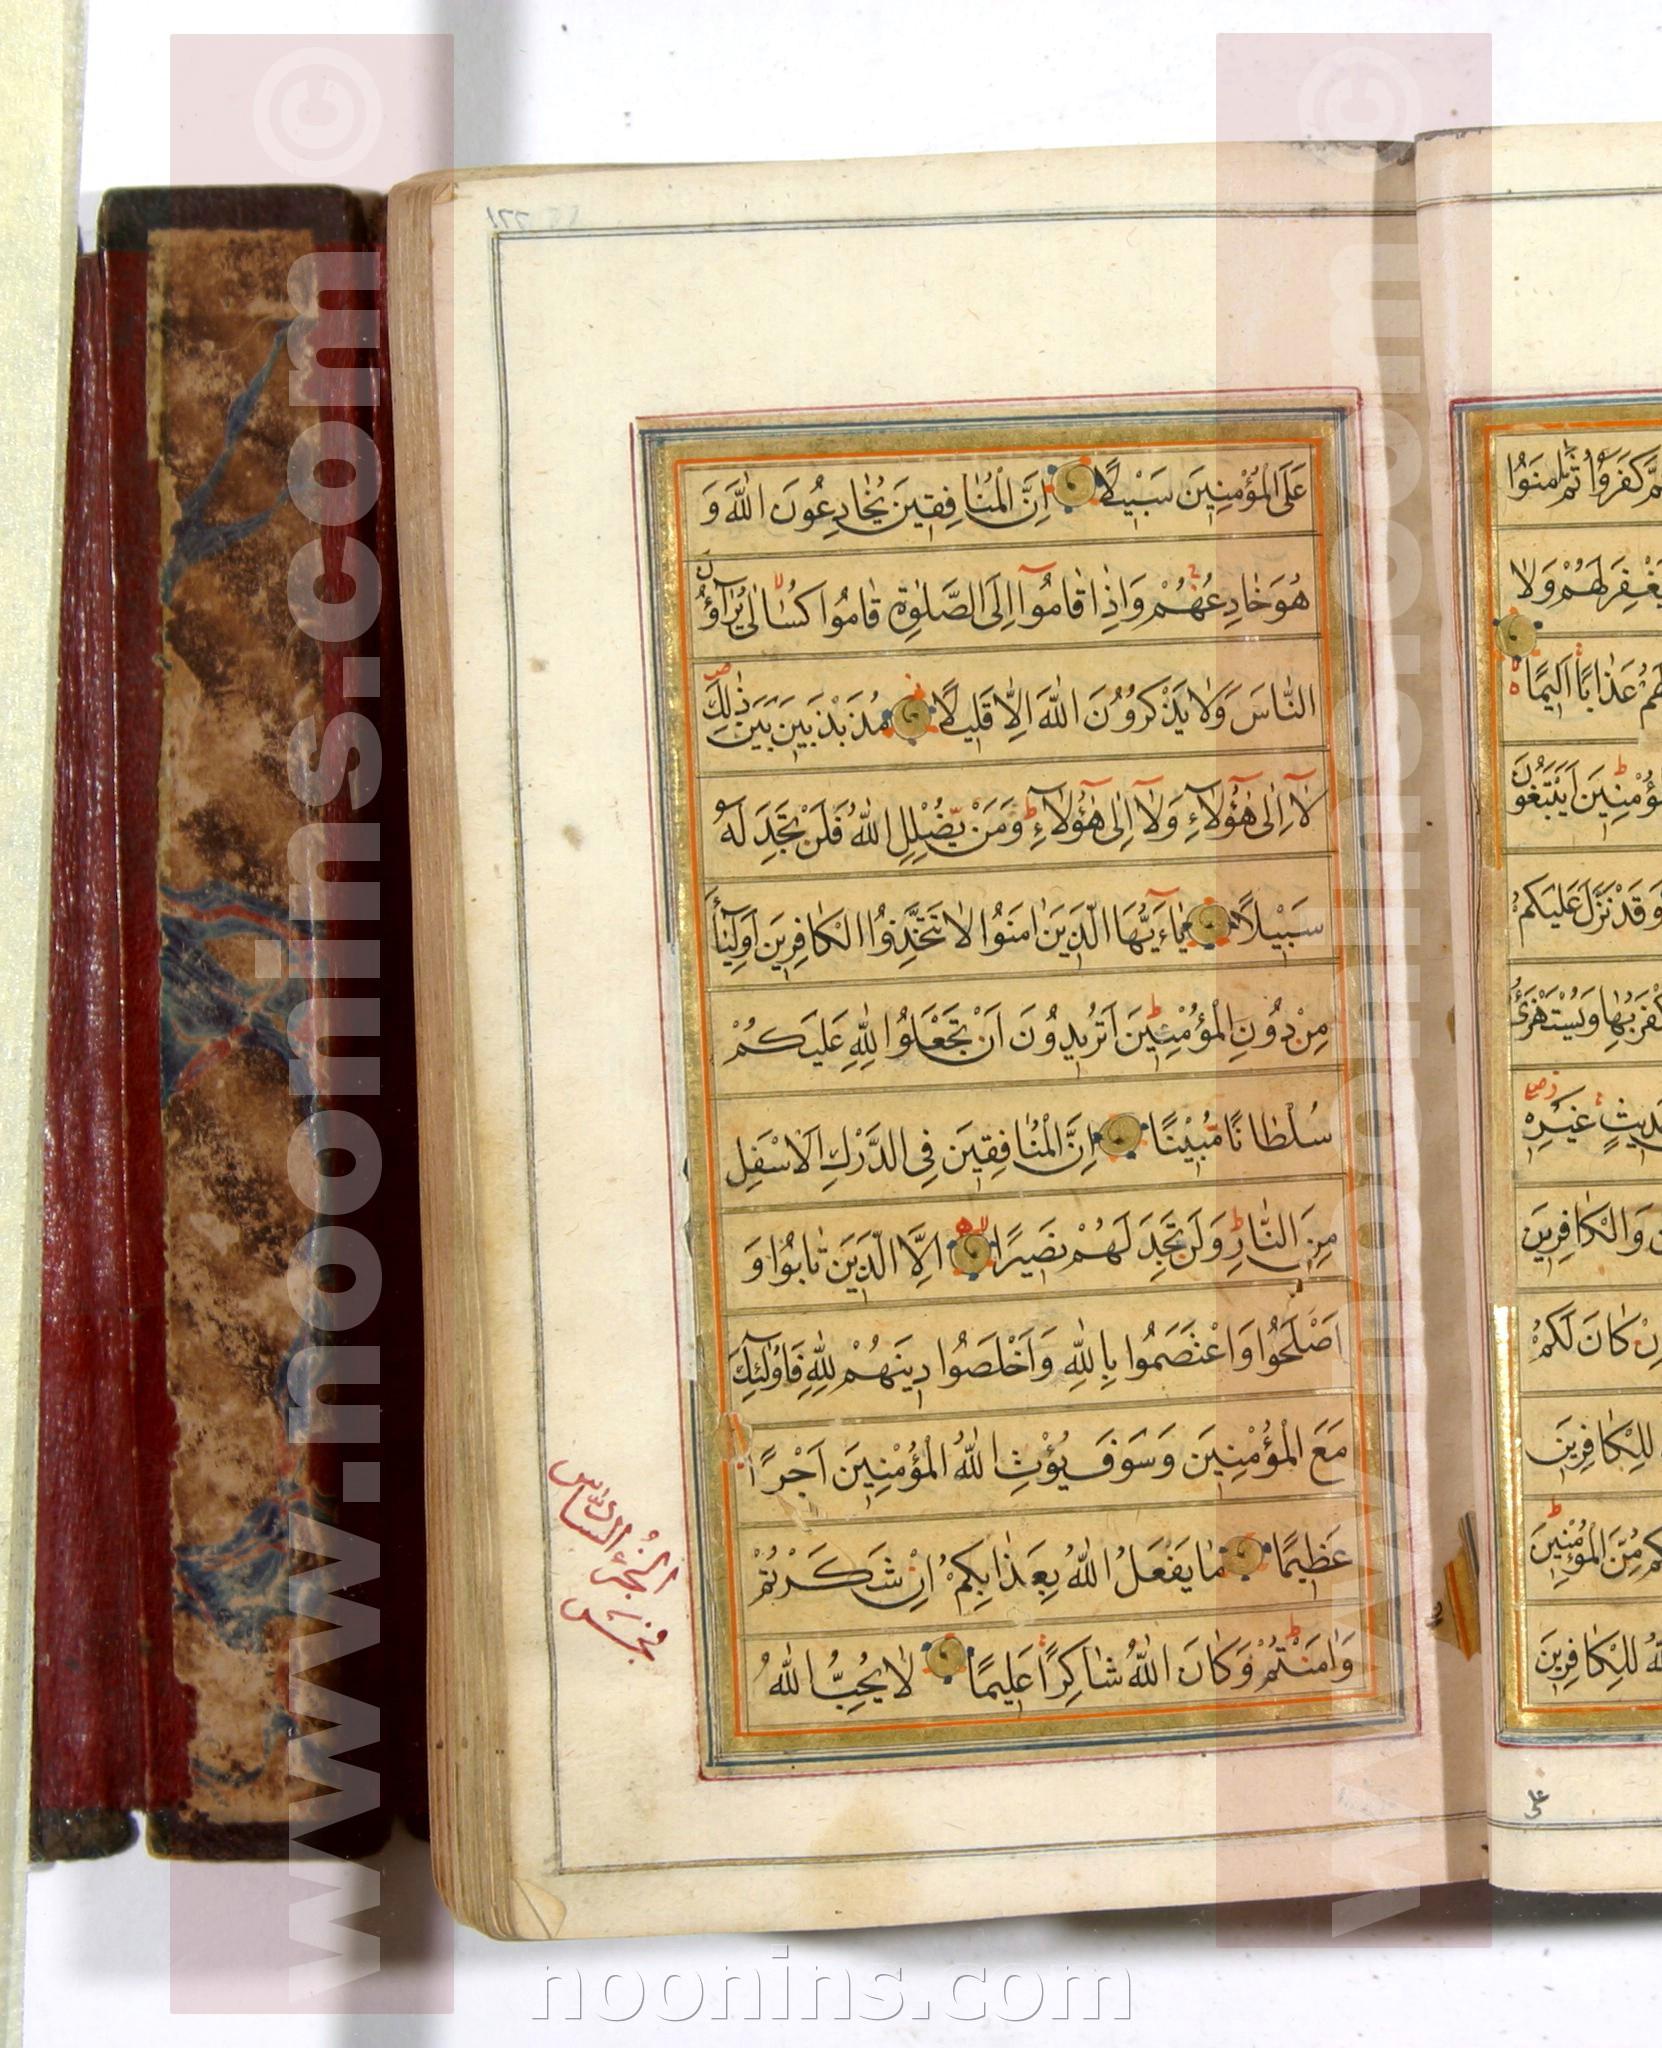 عَلَى الْمُؤْمِنِينَ سَبِيلًا اِنَّ الْمُنَافِقِينَ يُخَادِعُونَ اللّٰهَ وَ
هُوَ خَادِعُهُمْ وَاِذَا قَامُوٓا اِلَى الصَّلٰوةِ قَامُوا كُسَالٰى يُرَآؤُنَ
النَّاسَ وَلَا يَذْكُرُونَ اللّٰهَ اِلَّا قَلِيلًا مُذَبْذَبِينَ بَيْنَ ذٰلِكَ
لَآ اِلٰى هٰٓؤُلَآءِ وَلَآ اِلٰى هٰٓؤُلَآءِ وَمَنْ يُضْلِلِ اللّٰهُ فَلَنْ تَجِدَ لَهُ
سَبِيلًا يَآءَيُّهَا الَّذِينَ اٰمَنُوا لَا تَتَّخِذُوا الْكَافِرِينَ اَوْلِيَآءَ
مِنْ دُونِ الْمُؤْمِنِينَ اَتُرِيدُونَ اَنْ تَجْعَلُوا لِلّٰهِ عَلَيْكُمْ
سُلْطَانًا مُبِينًا اِنَّ الْمُنَافِقِينَ فِى الدَّرْكِ الْاَسْفَلِ
مِنَ النَّارِ وَلَنْ تَجِدَ لَهُمْ نَصِيرًا اِلَّا الَّذِينَ تَابُوا وَ
اَصْلَحُوا وَاعْتَصَمُوا بِاللّٰهِ وَاَخْلَصُوا دِينَهُمْ لِلّٰهِ فَاُولٰٓئِكَ
مَعَ الْمُؤْمِنِينَ وَسَوْفَ يُؤْتِ اللّٰهُ الْمُؤْمِنِينَ اَجْرًا
عَظِيمًا مَا يَفْعَلُ اللّٰهُ بِعَذَابِكُمْ اِنْ شَكَرْتُمْ
وَاٰمَنْتُمْ وَكَانَ اللّٰهُ شَاكِرًا عَلِيمًا لَا يُحِبُّ اللّٰهُ
الجُزْءُ السَّادِس
كَفَرُوا ثُمَّ اٰمَنُوا
لَهُمْ وَلَا
عَذَابًا اَلِيمًا
اَيَبْتَغُونَ
وَقَدْ نَزَّلَ عَلَيْكُمْ
بِهَا وَيُسْتَهْزَئُ
غَيْرِهِ
وَالْكَافِرِينَ
كَانَ لَكُمْ
لِلْكَافِرِينَ
مِنَ الْمُؤْمِنِينَ
لِلْكَافِرِينَ
على
www.noonins.com ©
www.noonins.com ©
noonins.com